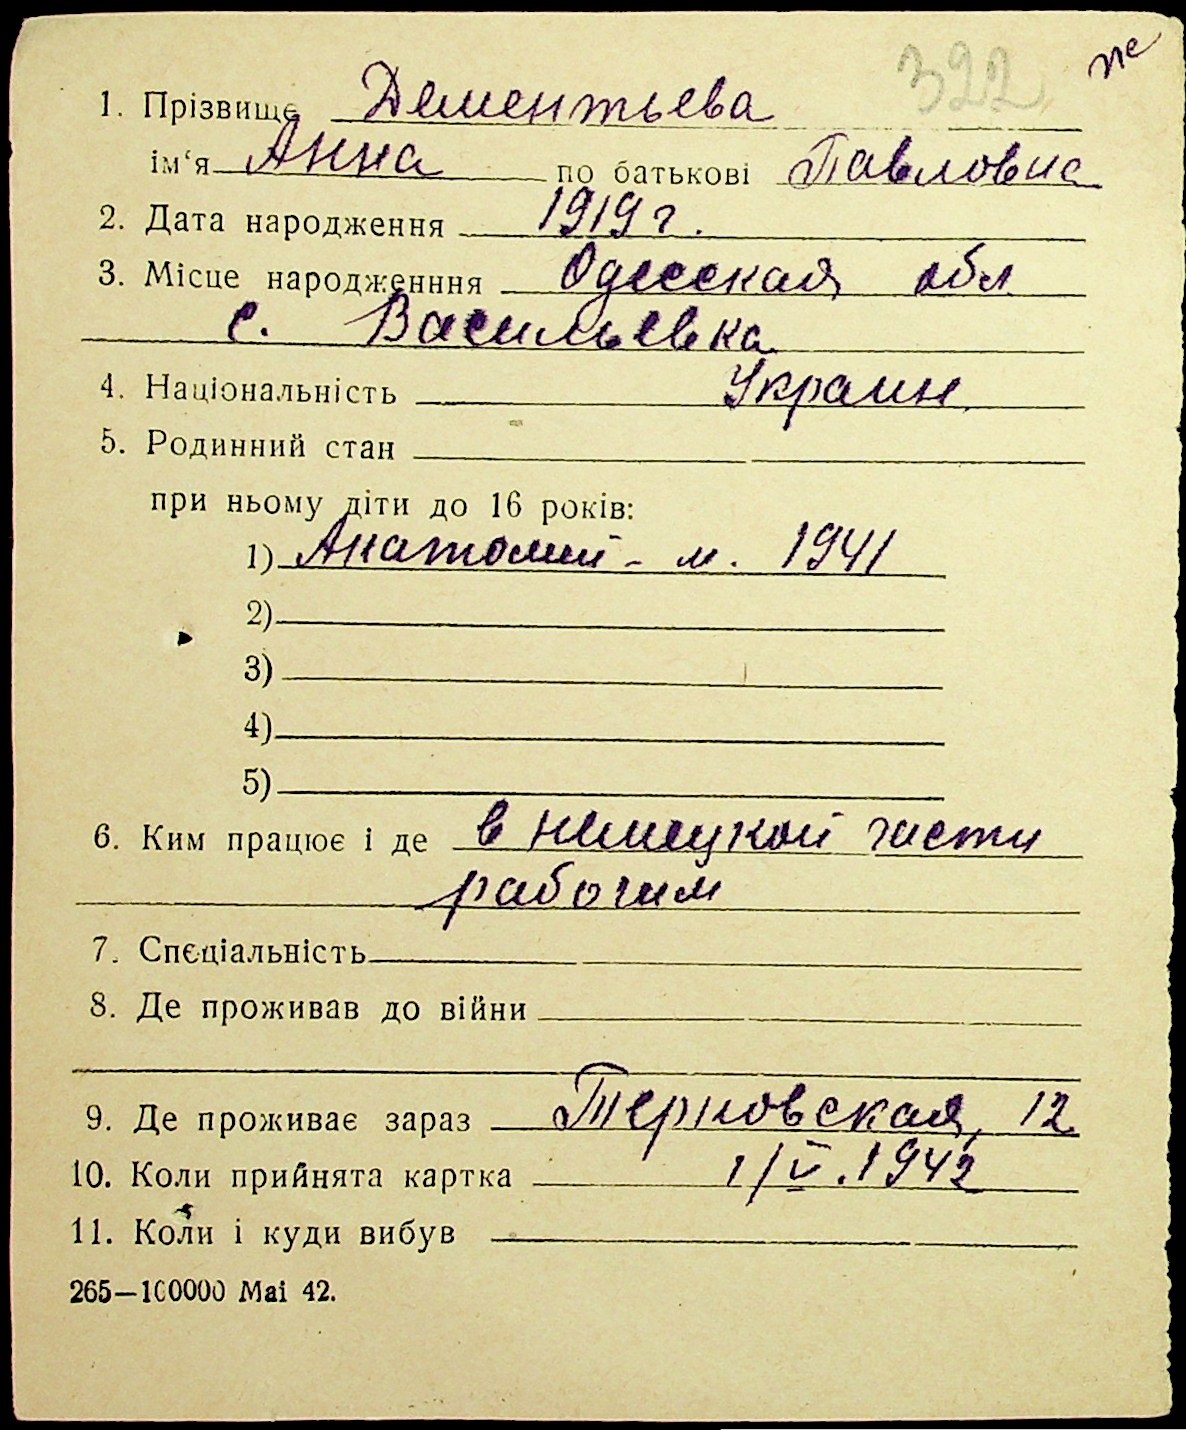 322 же
1. Прізвище Дементьева
ім‘я Анна по батькові Павловна
2. Дата народження 1919 г.
3. Місце народженння Одесская обл
с. Васильевка
4. Національність Украин.
5. Родинний стан
при ньому діти до 16 років:
1) Анатолий - м. 1941
2)
3)
4)
5)
6. Ким працює і де в немецкой части
рабочим
7. Спєціальність
8. Де проживав до війни
9. Де проживає зараз Терновская, 12
10. Коли прийнята картка 1/V.1942
11. Коли і куди вибув
265—100000 Mai 42.